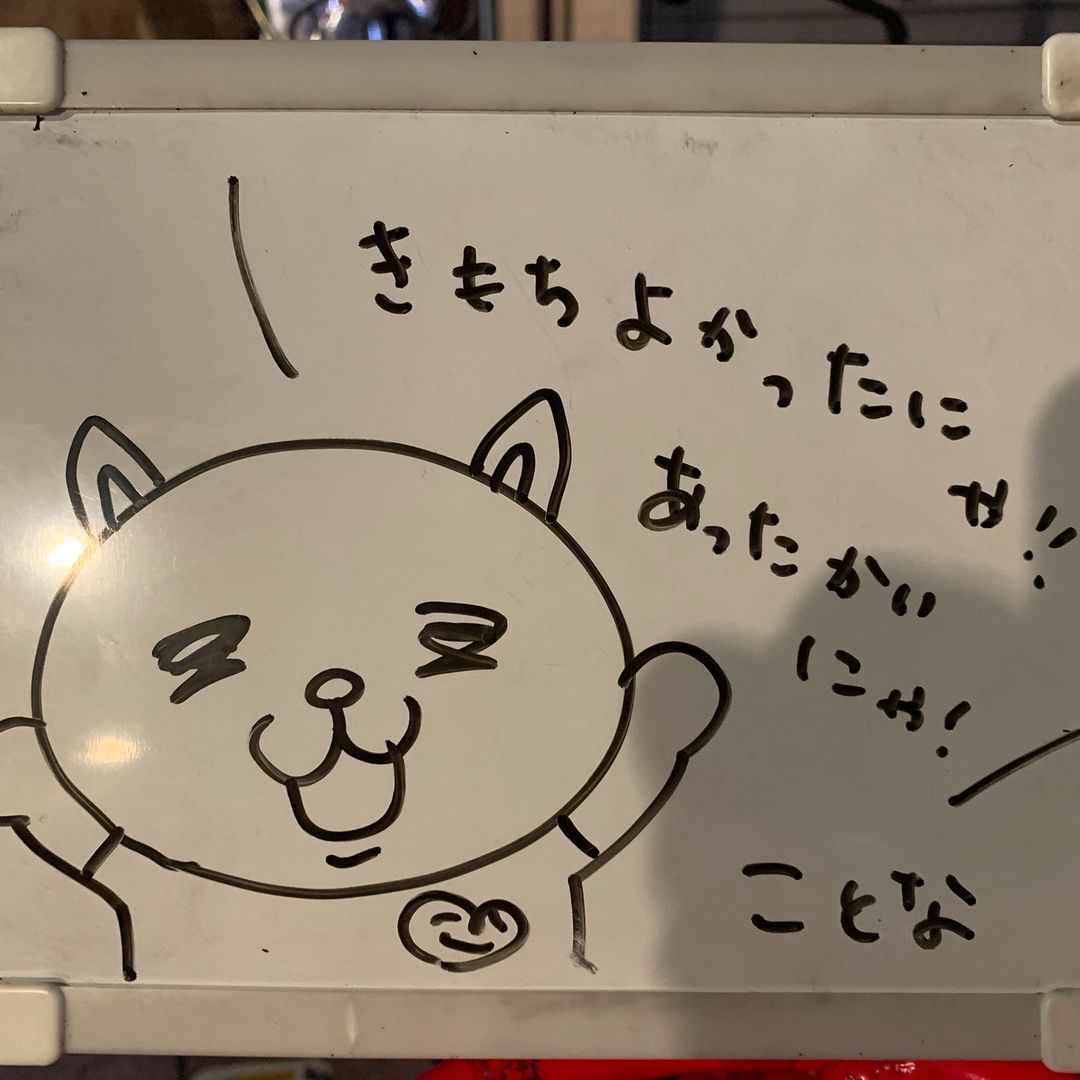 きもちよかったに
や!!
あったかい
にゃ!
ことな